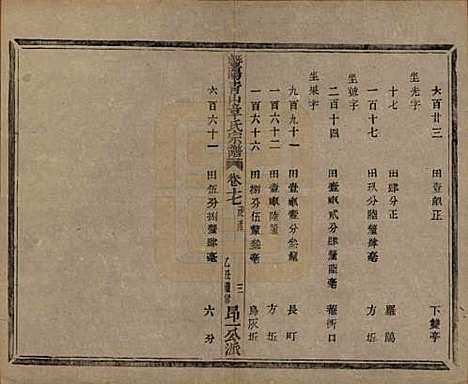 六百廿三 田壹畝正 下雙亭
坐光字
十七 田肆分正
一百十七 田玖分陸釐肆毫 方坵
坐號字
二百十四 田壹畝貳分肆釐陸毫
坐果字
九百九十一 田壹畝叁分 長町
一百六十二 田壹畝陸釐 方坵
一百六十六 田捌分伍釐叁毫 烏灰坵
暨陽青山章氏宗譜 卷十七 三 昂一公派
六百六十一 田伍分捌釐肆毫 六分